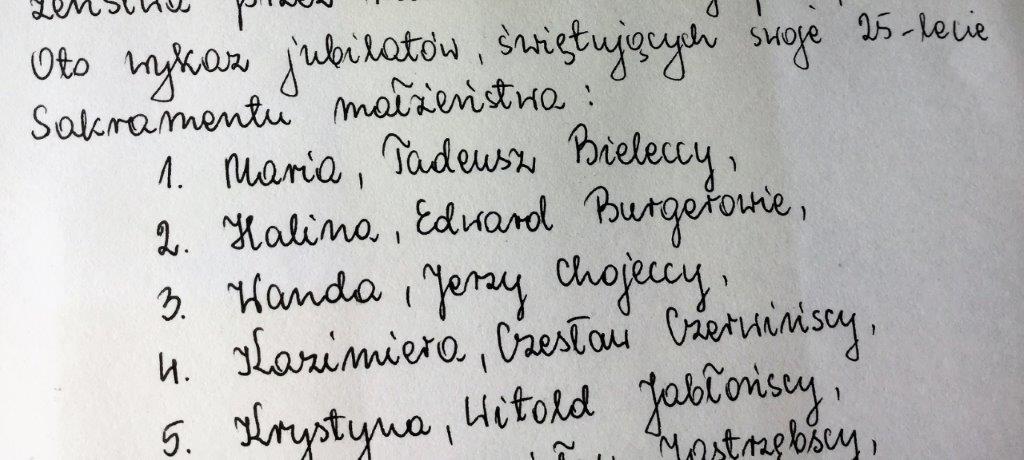 żeństwa przez
Oto wykaz jubilatów, świętujących swoje 25-lecie
Sakramentu małżeństwa :
1. Maria, Tadeusz Bieleccy,
2. Halina, Edward Burgerowie,
3. Wanda, Jerzy Chojeccy,
4. Kazimiera, Czesław Czerwińscy,
5. Krystyna, Witold Jabłońscy,
Jastrzębscy,